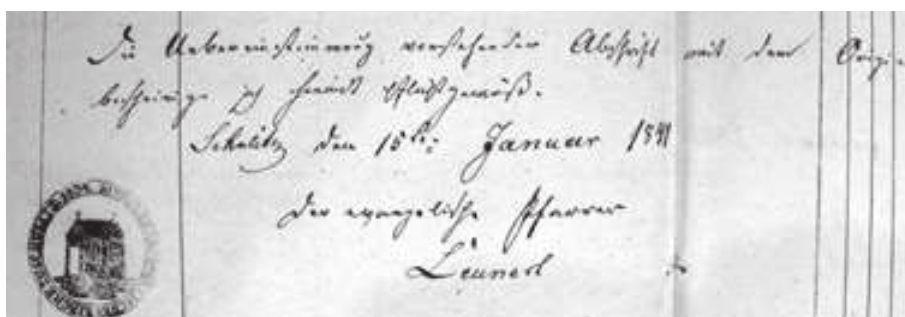 Die Uebereinstimmung vorstehender Abschrift mit dem Origi-
bescheinige ich hiermit Pflichtgemäß.
Schulitz den 15ten Januar 1841
Der evangelische Pfarrer